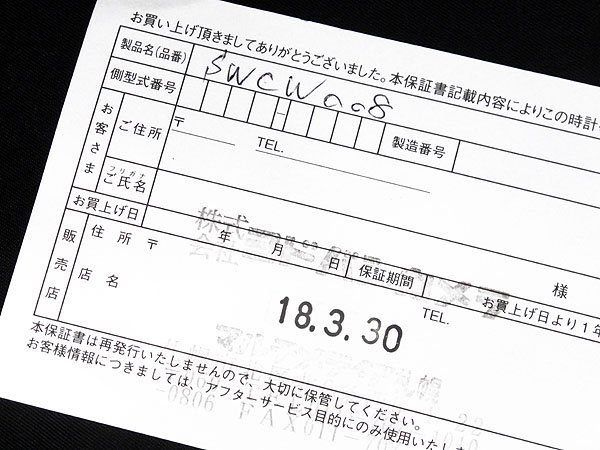 お買い上げ頂きましてありがとうございました。本保証書記載内容によりこの時計
製品名(品番) SWCW008
側型式番号 - 製造番号
お客さま ご住所 〒 TEL.
フリガナ
ご氏名 様
お買上げ日 年 月 日 保証期間 お買上げ日より1年
株式
会社
販売店 住所 〒 TEL.
店名
18.3.30
本保証書は再発行いたしませんので、大切に保管してください。
お客様情報につきましては、アフターサービス目的にのみ使用いたしま
-0806 FAX011-